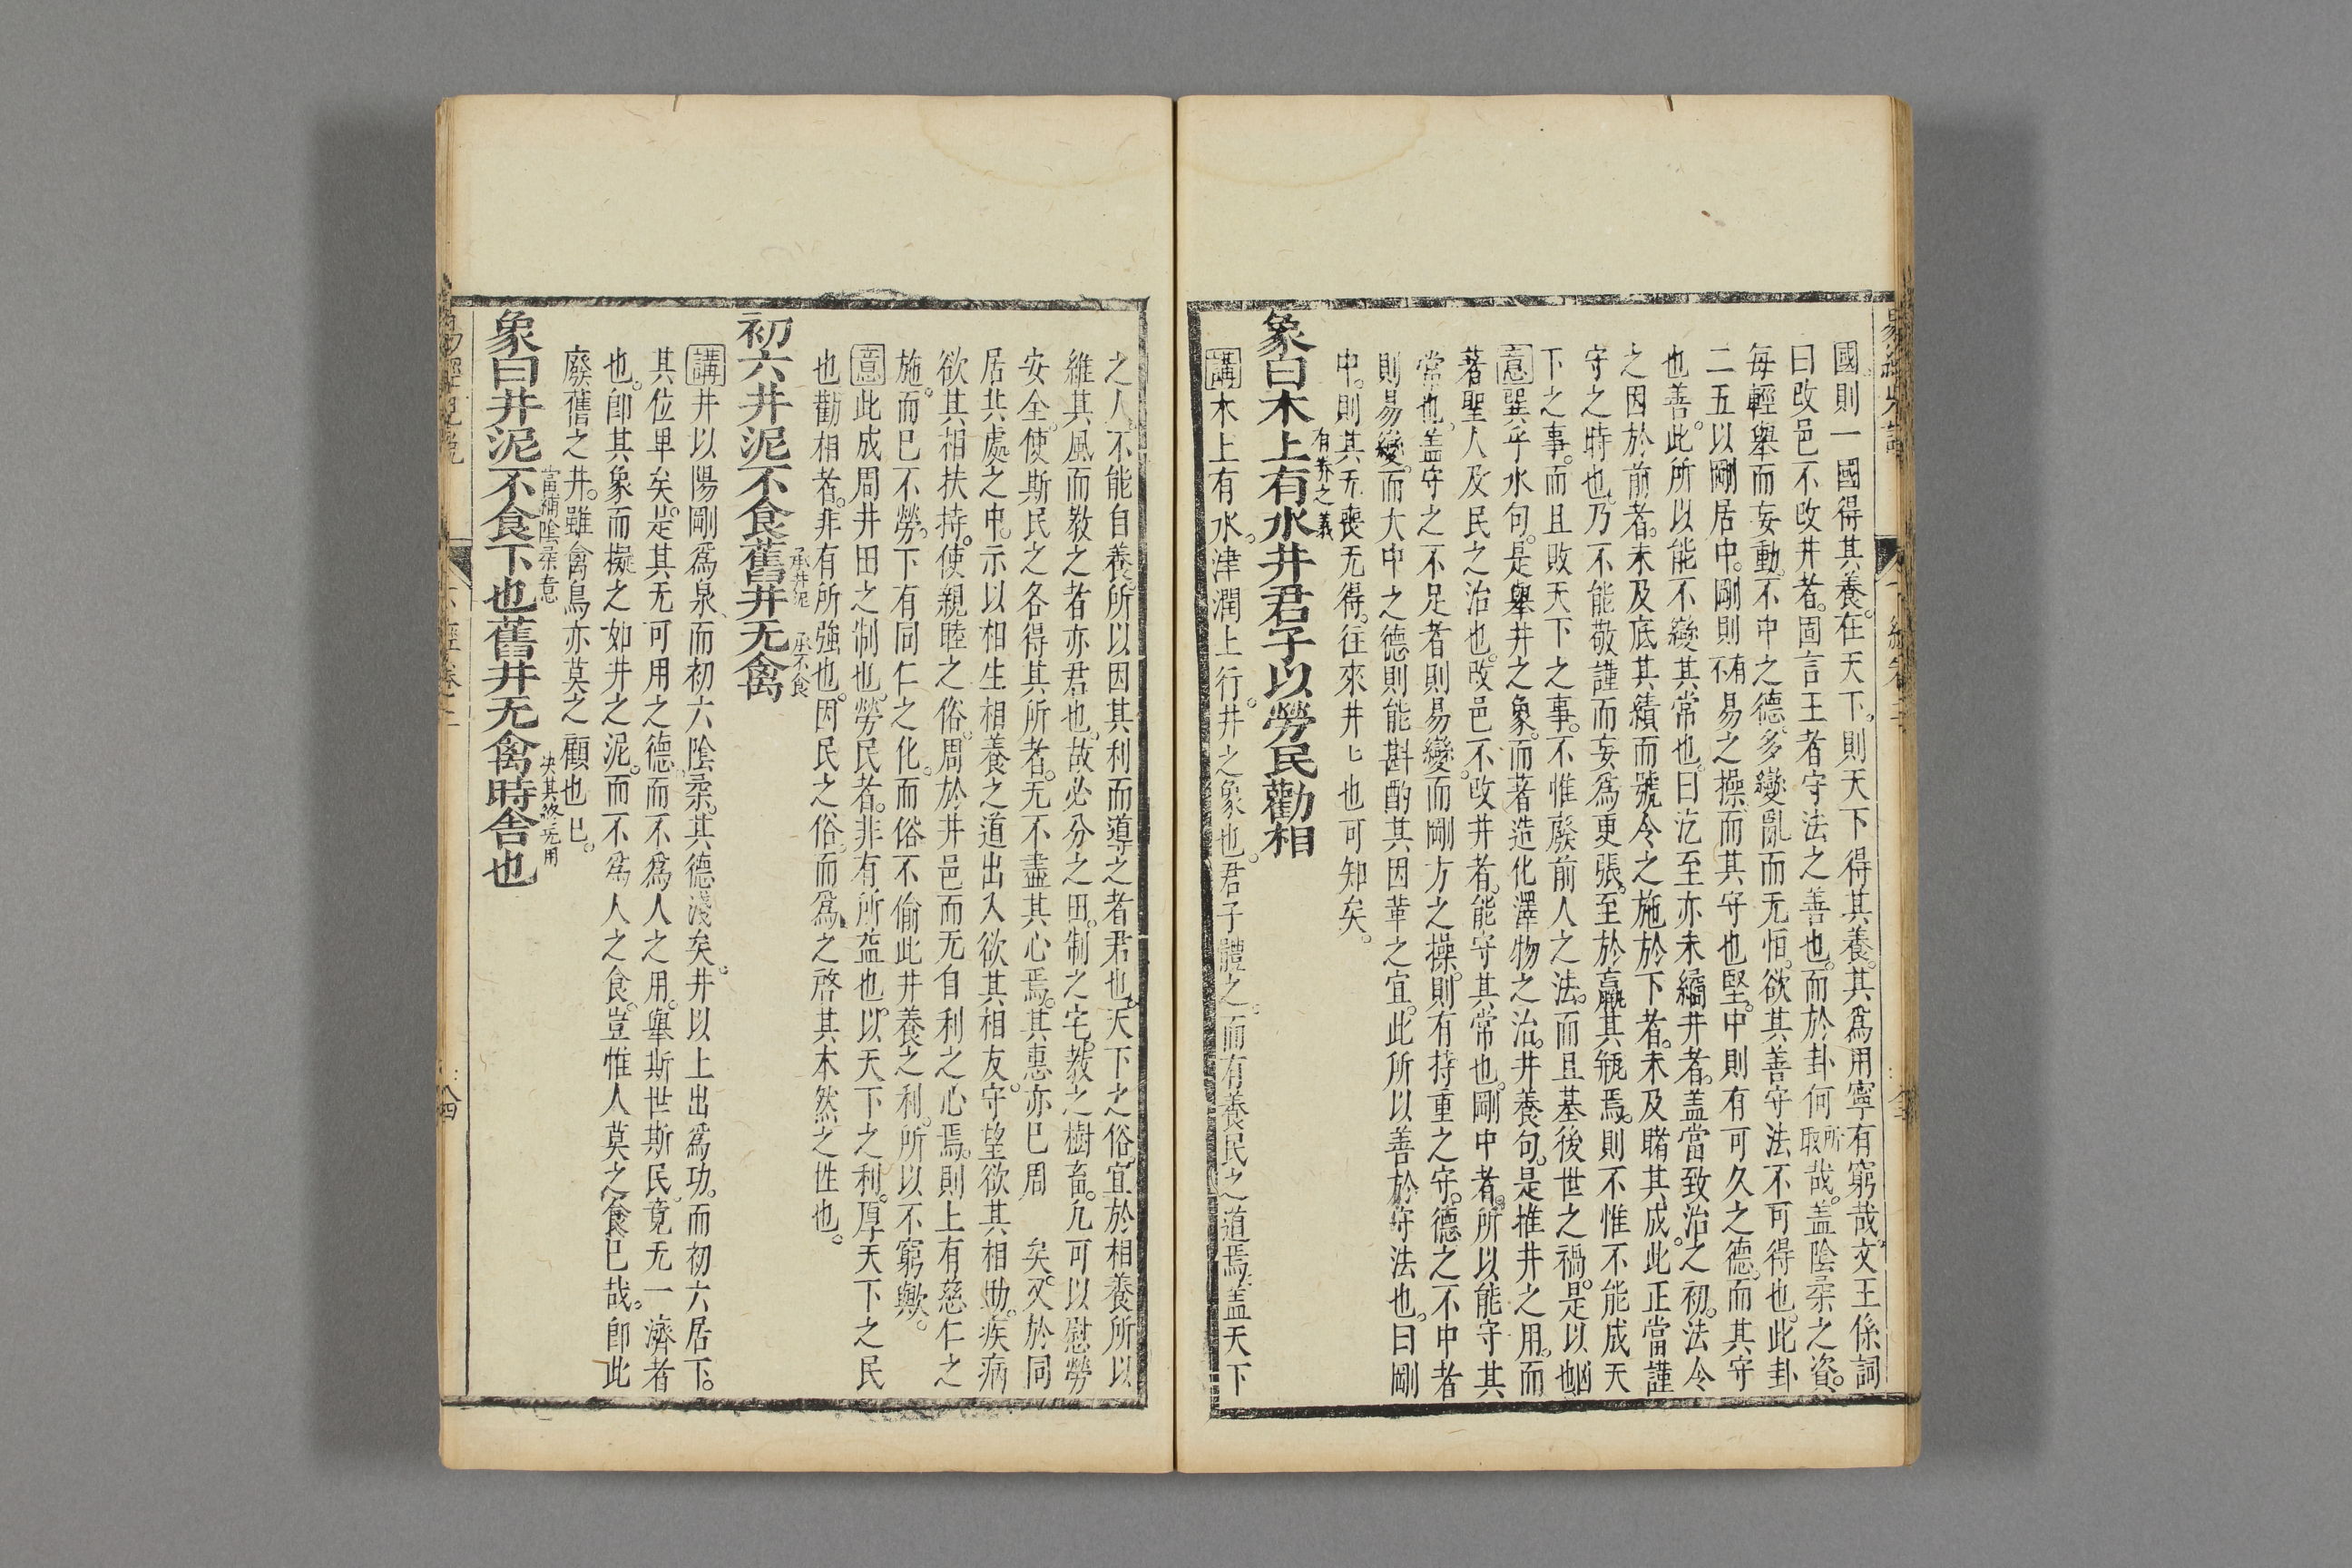 國則一國得其養。在天下。則天下得其養。其爲用寧有窮哉。文王係詞
曰改邑不改井者。固言王者守法之善也。而於卦何所取哉。蓋陰柔之資。
每輕舉而妄動。不中之德。多變亂而无恒。欲其善守法不可得也。此卦
二五以剛居中。剛則有不易之操。而其守也堅。中則有可久之德。而其守
也善。此所以能不變其常也。曰汔至亦未繘井者。蓋當致治之初。法令
之因於前者。未及底其績。而號令之施於下者。未及睹其成。此正當謹
守之時也。乃不能敬謹而妄爲更張。至於羸其瓶焉。則不惟不能成天
下之事。而且敗天下之事。不惟廢前人之法。而且基後世之禍。是以凶也
意巽乎水句。是舉井之象。而著造化澤物之治。井養句。是推井之用。而
著聖人及民之治也。改邑不改井者。能守其常也。剛中者。所以能守其
常也。蓋守之不足者則易變。而剛方之操。則有持重之守。德之不中者
則易變。而大中之德則能斟酌其因革之宜。此所以善於守法也。曰剛
中。則其无喪无得。往來井匕也可知矣。
有養之義
象曰木上有水井君子以勞民勸相
講木上有水。津潤上行。井之象也。君子體之。而有養民之道焉。蓋天下
之人。不能自養。所以因其利而導之者君也。天下之俗。宜於相養。所以
維其風而教之者亦君也。故必分之田。制之宅。教之樹畜。凡可以慰勞
安全。使斯民之各得其所者。无不盡其心焉。其惠亦已周矣。又於同
居共處之中。示以相生相養之道。出入欲其相友。守望欲其相助。疾病
欲其相扶持。使親睦之俗。周於井邑。而无自利之心焉。則上有慈仁之
施。而已不勞。下有同仁之化。而俗不偷。此井養之利。所以不窮歟。
意此成周井田之制也。勞民者。非有所益也。以天下之利。厚天下之民
也。勸相者。非有所強也。因民之俗。而爲之啓其本然之性也。
初六井泥不食舊井无禽
承井泥 承不食
講井以陽剛爲泉、而初六陰柔。其德淺矣。井以上出爲功。而初六居下。
其位卑矣。是其无可用之德。而不爲人之用。舉斯世斯民。竟无一濟者
也。卽其象而擬之。如井之泥。而不爲人之食。豈惟人莫之食已哉。卽此
廢舊之井。雖禽鳥亦莫之顧也已。
當補陰柔意 決其終无用
象曰井泥不食下也舊井无禽時舍也